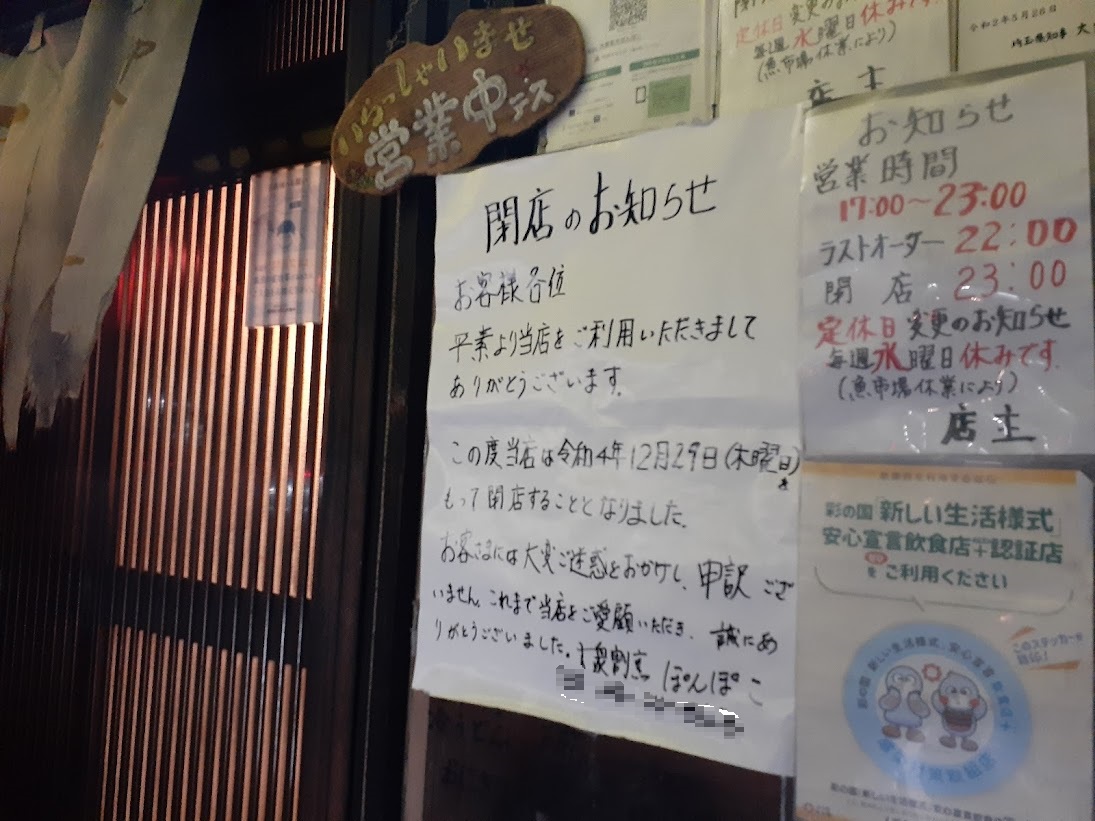 いらっしゃいませ
営業中デス
定休日変更のお
毎週水曜日休みです
(魚市場休業により)
店主
令和2年5月26日
埼玉県知事 大
閉店のお知らせ
お客様各位
平素より当店をご利用いただきまして
ありがとうございます。
この度当店は令和4年12月29日(木曜日)を
もって閉店することとなりました。
お客さまには大変ご迷惑をおかけし、申訳ござ
いません。これまで当店をご愛顧いただき、誠にあ
りがとうございました。大衆割烹 ぽんぽこ
お知らせ
営業時間
17:00～23:00
ラストオーダー 22:00
閉店 23:00
定休日変更のお知らせ
毎週水曜日休みです.
(魚市場休業により)
店主
彩の国「新しい生活様式」
安心宣言飲食店+認証店
をご利用ください
このステッカーが
目印!
彩の国 新しい生活様式 安心宣言 飲食店+
彩の国「新しい生活様式」安心宣言飲食店